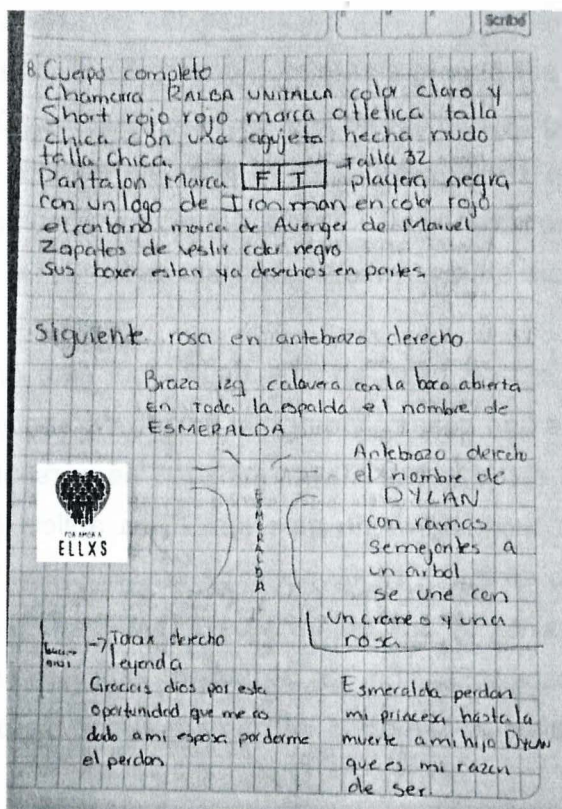 Scribe
8 Cuerpo completo
Chamarra RALBA UNITALLA color claro y
Short rojo rojo marca atletica talla
chica con una agujeta hecha nudo
talla chica.
Talla 32
Pantalon Marca F I playera negra
con un logo de Ironman en color rojo
el contorno marca de Avenger de Marvel
Zapatos de vestir color negro
sus boxer estan ya desechos en partes.
Siguiente rosa en antebrazo derecho
Brazo izq calavera con la boca abierta
En Toda la espalda el nombre de
ESMERALDA
Antebrazo derecho
el nombre de
DYLAN
con ramas
semejantes a
un arbol
se une con
un craneo y una
rosa
ESMERALDA
POR AMOR A
ELLXS
→ Torax derecho
leyenda
Gracias dios por esta
oportunidad que me as
dado a mi esposa por derme
el perdon
Esmeralda perdon
mi princesa hasta la
muerte a mi hijo Dylan
que es mi razon
de ser.